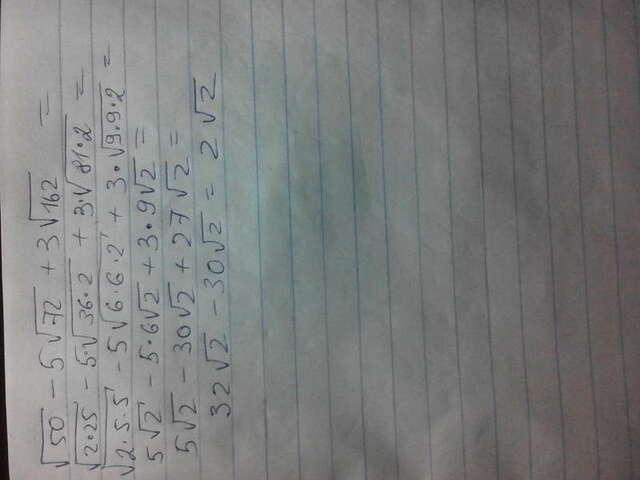 √50 - 5√72 + 3√162 =
√2•25 - 5•√36•2 + 3•√81•2 =
√2•5•5 - 5√6•6•2 + 3•√9•9•2 =
5√2 - 5•6√2 + 3•9√2 =
5√2 - 30√2 + 27√2 =
32√2 - 30√2 = 2√2